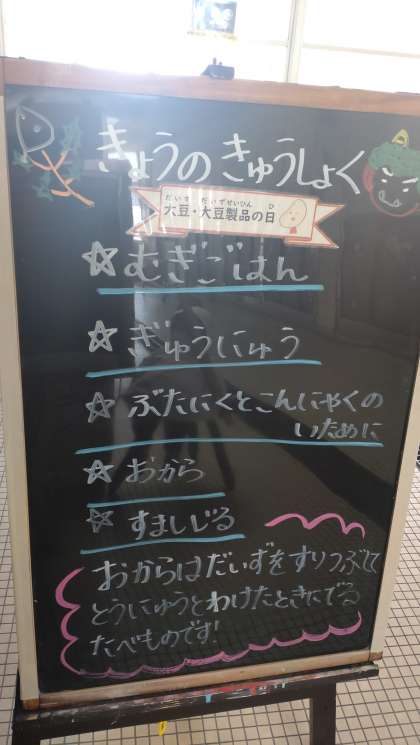 きょうのきゅうしょく
だいず だいずせいひん ひ
大豆・大豆製品の日
☆むぎごはん
☆ぎゅうにゅう
☆ぶたにくとこんにゃくの
いために
☆おから
☆すましじる
おからはだいずをすりつぶして
とうにゅうとわけたときにでる
たべものです!